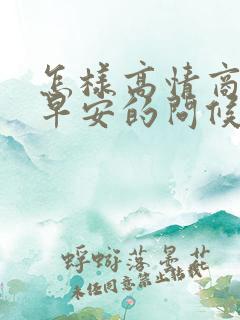 怎样高情商
早安的问候
蜉蝣落晏花
未经同意禁止转载